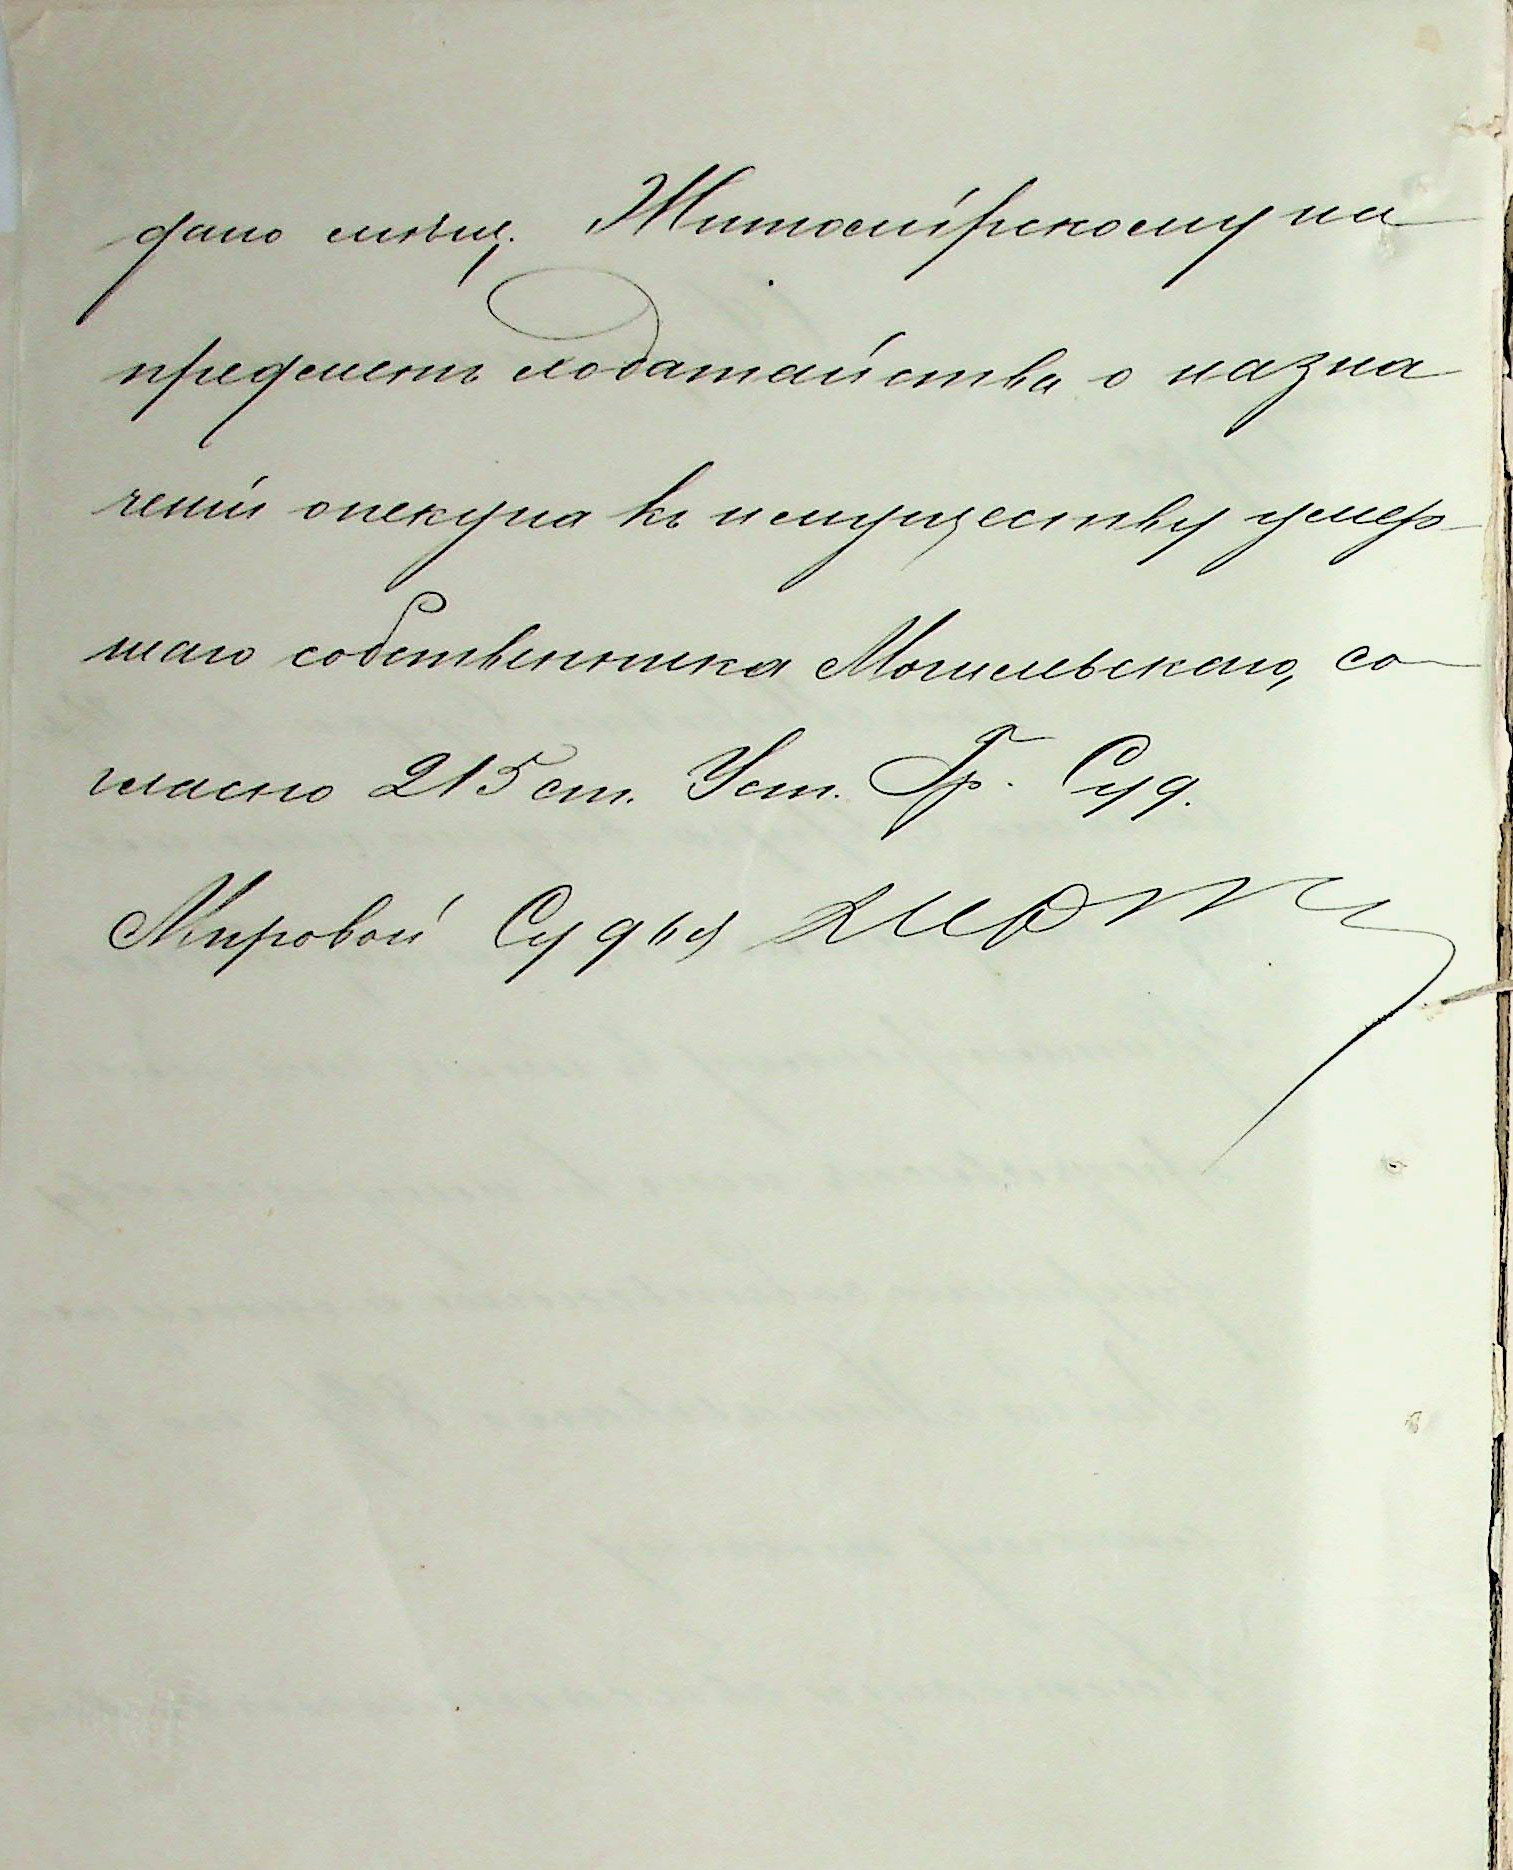 дано мѣщ. Житомірскому на
предметъ ходатайства о назна
ченіи опекуна къ имуществу умер-
шаго собственника Могилевскаго, со-
гласно 215 ст. Уст. Гр. Суд.
Мировой Судья